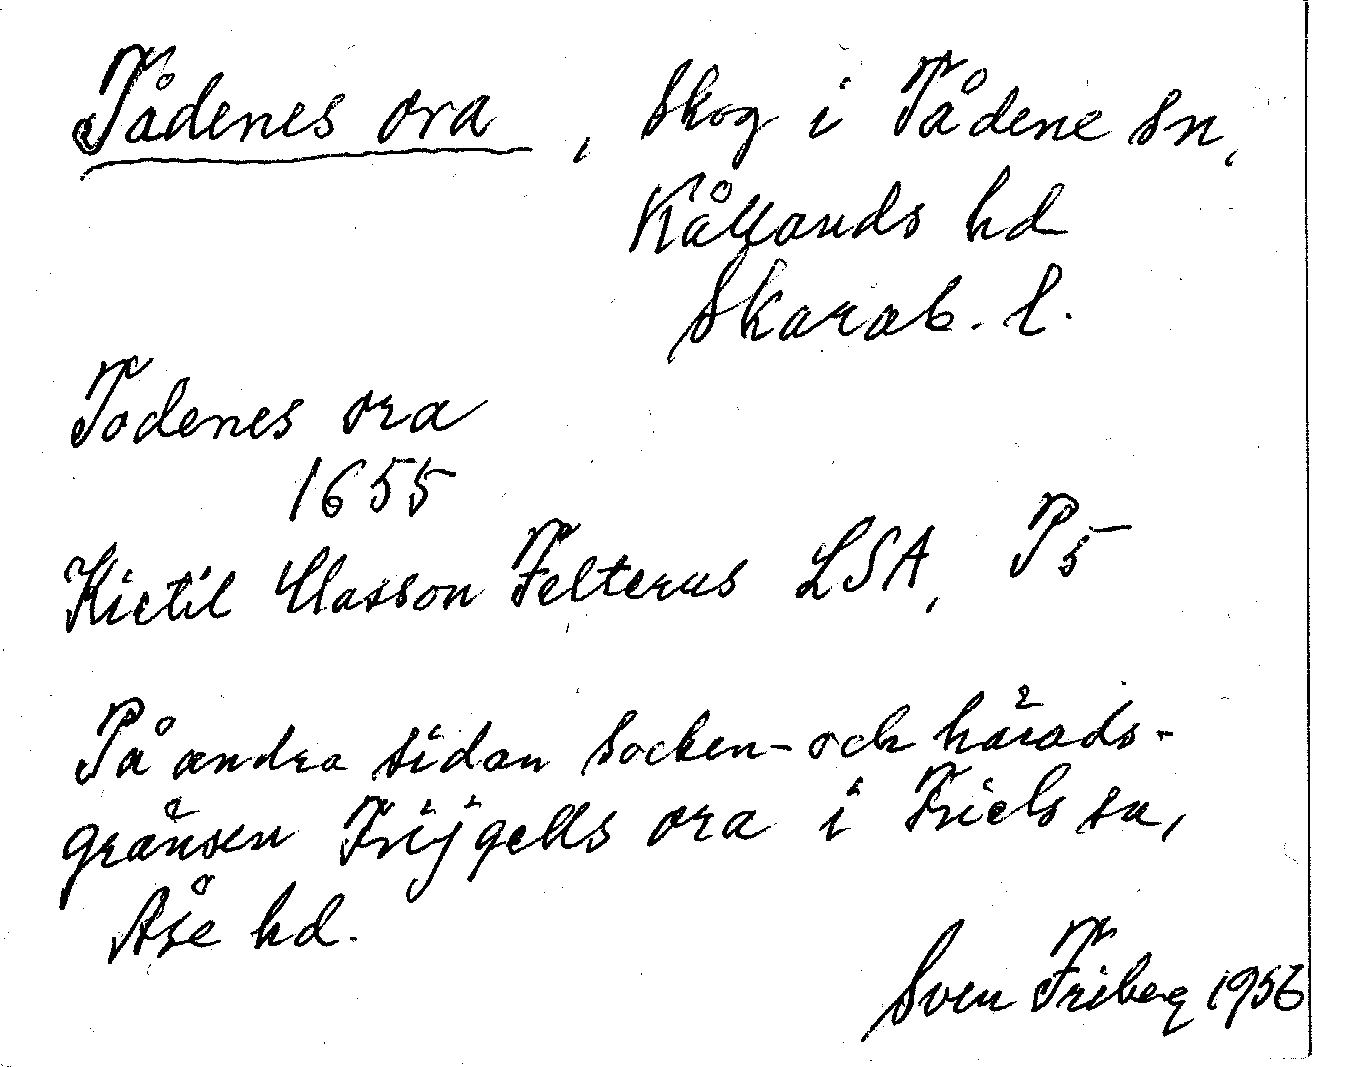 Tådenes ora, Skog i Tådene sn,
Kållands hd
Skarab. l.
Todenes ora
1655
Kietil Classon Felterus LSA, P5
På andra sidan socken- och härads-
gränsen Frijgells ora i Friels sn,
Åse hd.
Sven Friberg 1956